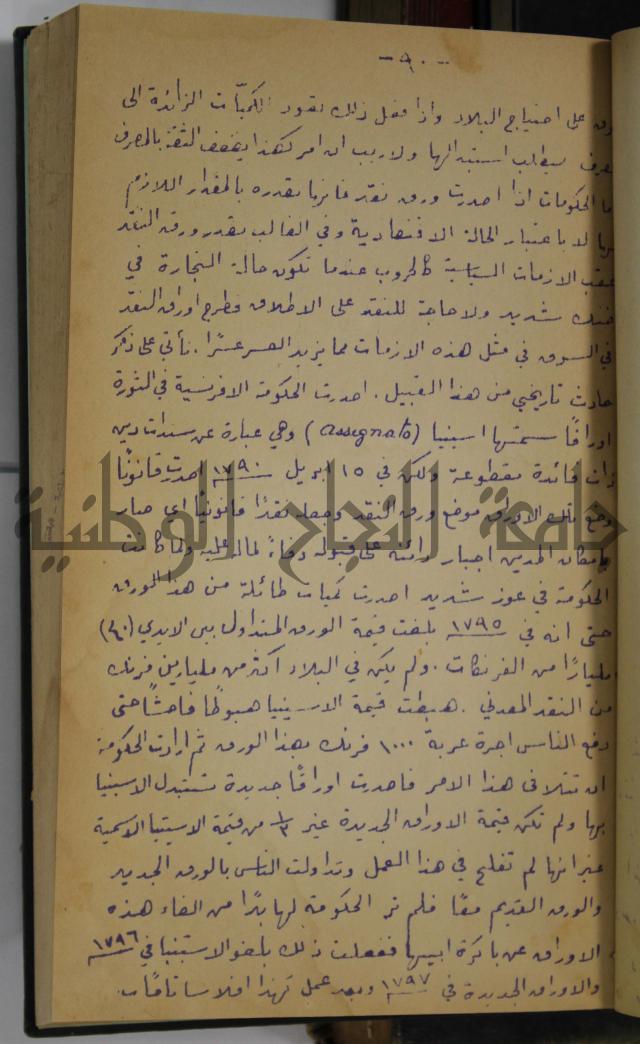 -٩٠-
على احتياج البلاد واذا فعل ذلك تعود الكميات الزائدة الى
يطلب استبدالها ولا ريب ان امر كهذا يضعف الثقة بالمصرف
الحكومات اذا اصدرت ورق نقد فانها تقدره بالمقدار اللازم
لها لا باعتبار الحالة الاقتصادية وفي الغالب يصدر ورق النقد
عقب الازمات السياسية كالحروب عندما تكون حالة التجارة في
ضنك شديد ولا حاجة للنقد على الاطلاق فطرح اوراق النقد
في السوق في مثل هذه الازمات مما يزيد العسر عسرًا. نأتي على ذكر
حادث تاريخي من هذا القبيل. اصدرت الحكومة الافرنسية في الثورة
اوراقًا سمتها اسينيا (assignats) وهي عبارة عن سندات دين
ذات فائدة مقطوعة ولكن في ١٥ ابريل ١٧٩٠ اصدرت قانونًا
وضع تلك الاوراق موضع ورق النقد وجعله نقدًا قانونيًا اي صار
بامكان المدين اجبار دائنه على قبوله وفاءً لما له عليه ولما كانت
الحكومة في عوز شديد اصدرت كميات طائلة من هذا الورق
حتى انه في ١٧٩٥ بلغت قيمة الورق المتداول بين الايدي (٤٠)
مليارًا من الفرنكات. ولم يكن في البلاد اكثر من مليارين فرنك
من النقد المعدني. هبطت قيمة الاسينيا هبوطًا فاحشًا حتى
دفع الناس اجرة عربة ١٠٠٠ فرنك بهذا الورق ثم ارادت الحكومة
ان تتلافى هذا الامر فاصدرت اوراقًا جديدة تستبدل الاسينيا
بها ولم تكن قيمة الاوراق الجديدة غير ١/٣ من قيمة الاسينيا الاسمية
غير انها لم تفلح في هذا العمل وتداولت الناس بالورق الجديد
والورق القديم معًا فلم تر الحكومة لها بدًا من الغاء هذه
الاوراق عن باكرة ابيها ففعلت ذلك بلغو الاسينيا في ١٧٩٦
والاوراق الجديدة في ١٧٩٧ وبعد عمل كهذا افلاسا تامًا
جامعة النجاح الوطنية